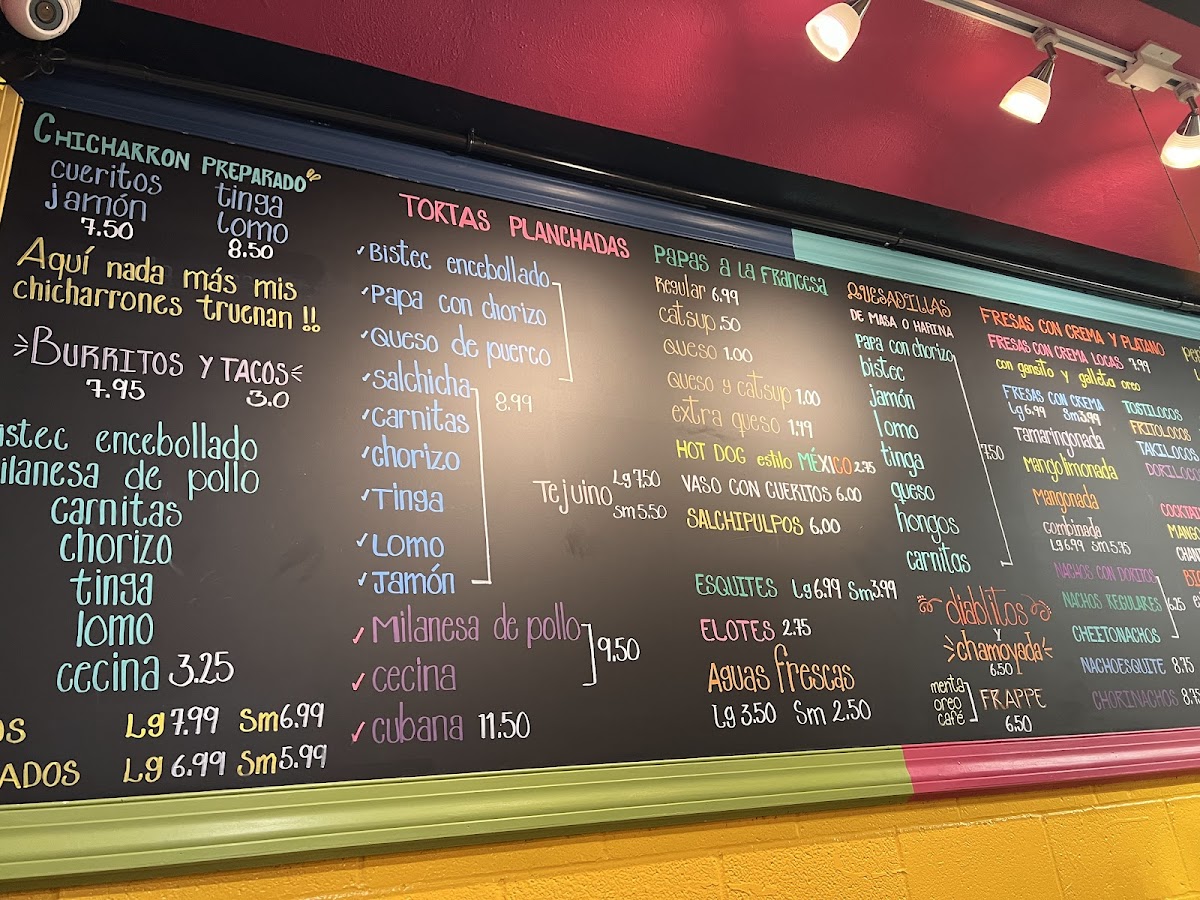 CHICHARRON PREPARADO
cueritos
jamón
7.50
tinga
lomo
8.50
Aquí nada más mis
chicharrones truenan !!
BURRITOS Y TACOS
7.95 3.0
encebollado
milanesa de pollo
carnitas
chorizo
tinga
lomo
cecina 3.25
Lg 7.99 Sm 6.99
Lg 6.99 Sm 5.99
TORTAS PLANCHADAS
Bistec encebollado
Papa con chorizo
Queso de puerco
salchicha
carnitas
chorizo
Tinga
Lomo
Jamón
8.99
Milanesa de pollo
cecina
9.50
cubana 11.50
Tejuino Lg 7.50
sm 5.50
PAPAS A LA FRANCESA
Regular 6.99
catsup .50
queso 1.00
queso y catsup 1.00
extra queso 1.49
HOT DOG estilo MÉXICO 2.75
VASO CON CUERITOS 6.00
SALCHIPULPOS 6.00
ESQUITES Lg 6.99 Sm 3.99
ELOTES 2.75
Aguas frescas
Lg 3.50 Sm 2.50
QUESADILLAS
DE MASA O HARINA
Papa con chorizo
bistec
jamón
lomo
tinga
queso
hongos
carnitas
7.50
diablitos
y
chamoyada
6.50
menta
oreo
café
FRAPPE
6.50
FRESAS CON CREMA Y PLATANO
FRESAS CON CREMA LOCAS 7.99
con gansito y galleta oreo
FRESAS CON CREMA
Lg 6.99 Sm 3.99
Tamaringonada
Mangolimonada
Mangonada
combinada
Lg 6.99 Sm 5.75
NACHOS CON DORITOS
NACHOS REGULARES
CHEETONACHOS
6.25
NACHOESQUITE 8.75
CHORINACHOS
TOSTILOCOS
FRITOLOCOS
TAKILOCOS